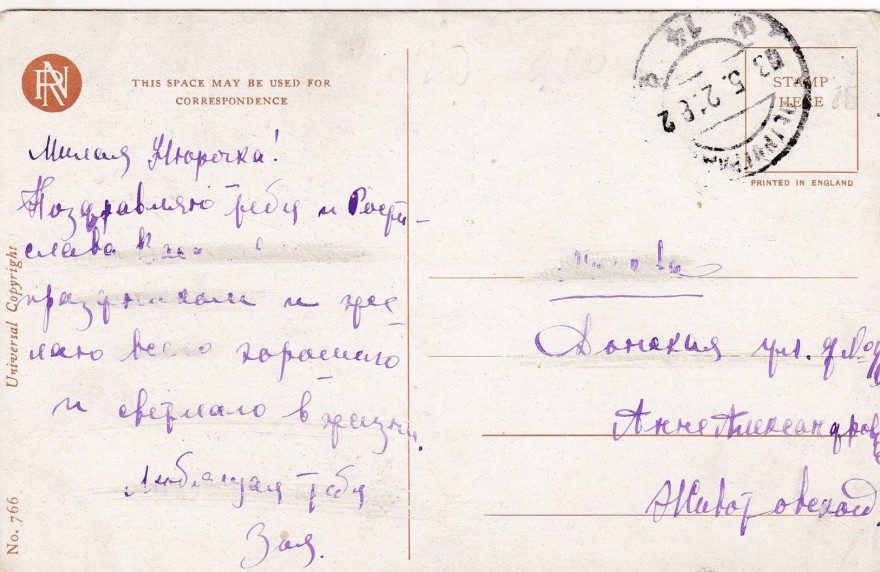 THIS SPACE MAY BE USED FOR
CORRESPONDENCE
Милая Нюрочка!
Поздравляю тебя и Рости-
слава
праздником и же
лаю всего хорошаго
и светлаго в жизни.
Любящая тебя
Зоя.
Universal Copyright
No. 766
STAMP
HERE
PRINTED IN ENGLAND
Донская ул. д №
Анне Александров